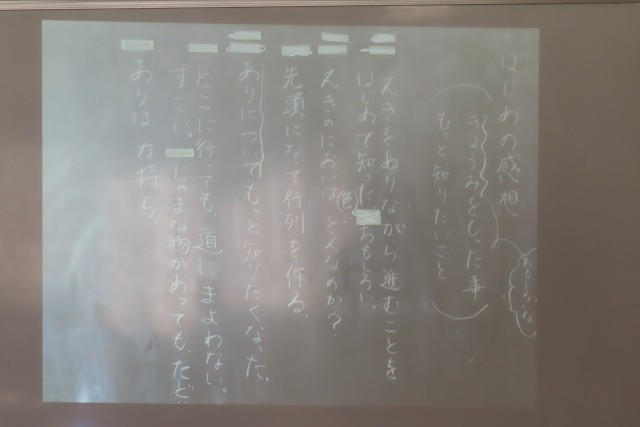 はじめの感想
きょうみをもった事
もっと知りたいこと
えきをおりながら進むことを
はじめて知った。おもしろい。
えきのにおいは、どんなのか?
先頭になって行列を作る。
ありについてもっと知りたくなった。
どこに行っても、道にまよわない。
すごい。じゃまな物があっても、たど
ありは、力持ち。